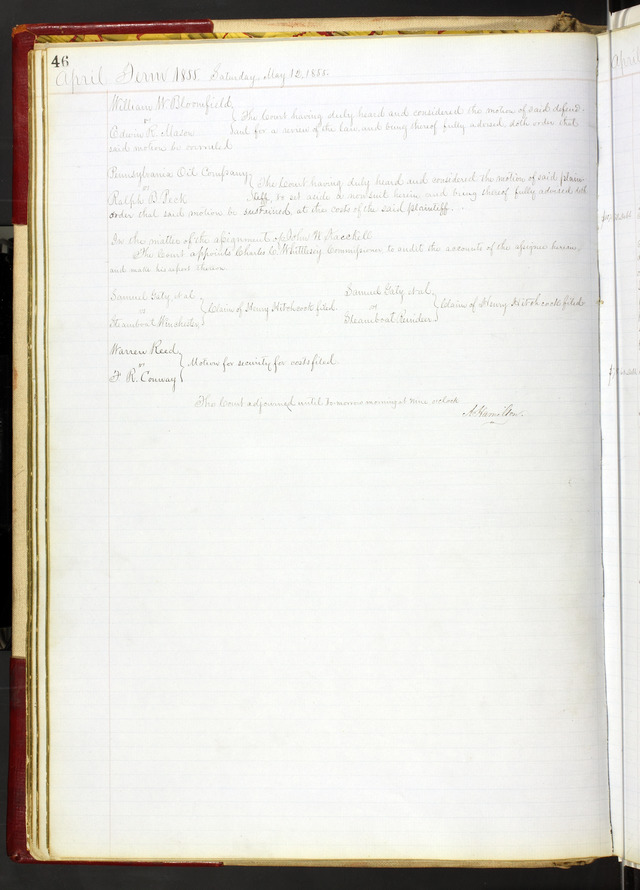 46
April Term 1855. Saturday, May 12, 1855.
William W Bloomfield
vs
Edwin R. Mason
The Court having duly heard and considered the motion of said defend-
ant for a review of the case, and being thereof fully advised, doth order that
said motion be overruled.
Pennsylvania Oil Company
vs
Ralph B. Peck
The Court having duly heard and considered the motion of said plain-
tiff, to set aside a nonsuit herein and being thereof fully advised doth
order that said motion be sustained, at the costs of the said plaintiff.
In the matter of the assignment of John W
The Court appoints Charles C. Whittlesey Commissioner to audit the accounts of the assignee herein,
and make his report thereon
Samuel Gaty et al
vs
Steamboat Winchester
Claim of Henry Hitchcock filed.
Samuel Gaty et al
vs
Steamboat Reindeer
Claim of Henry Hitchcock filed
Warren Reed
vs
F. R. Conway
Motion for security for costs filed
The Court adjourned until tomorrow morning at nine o'clock
A. Hamilton.
April